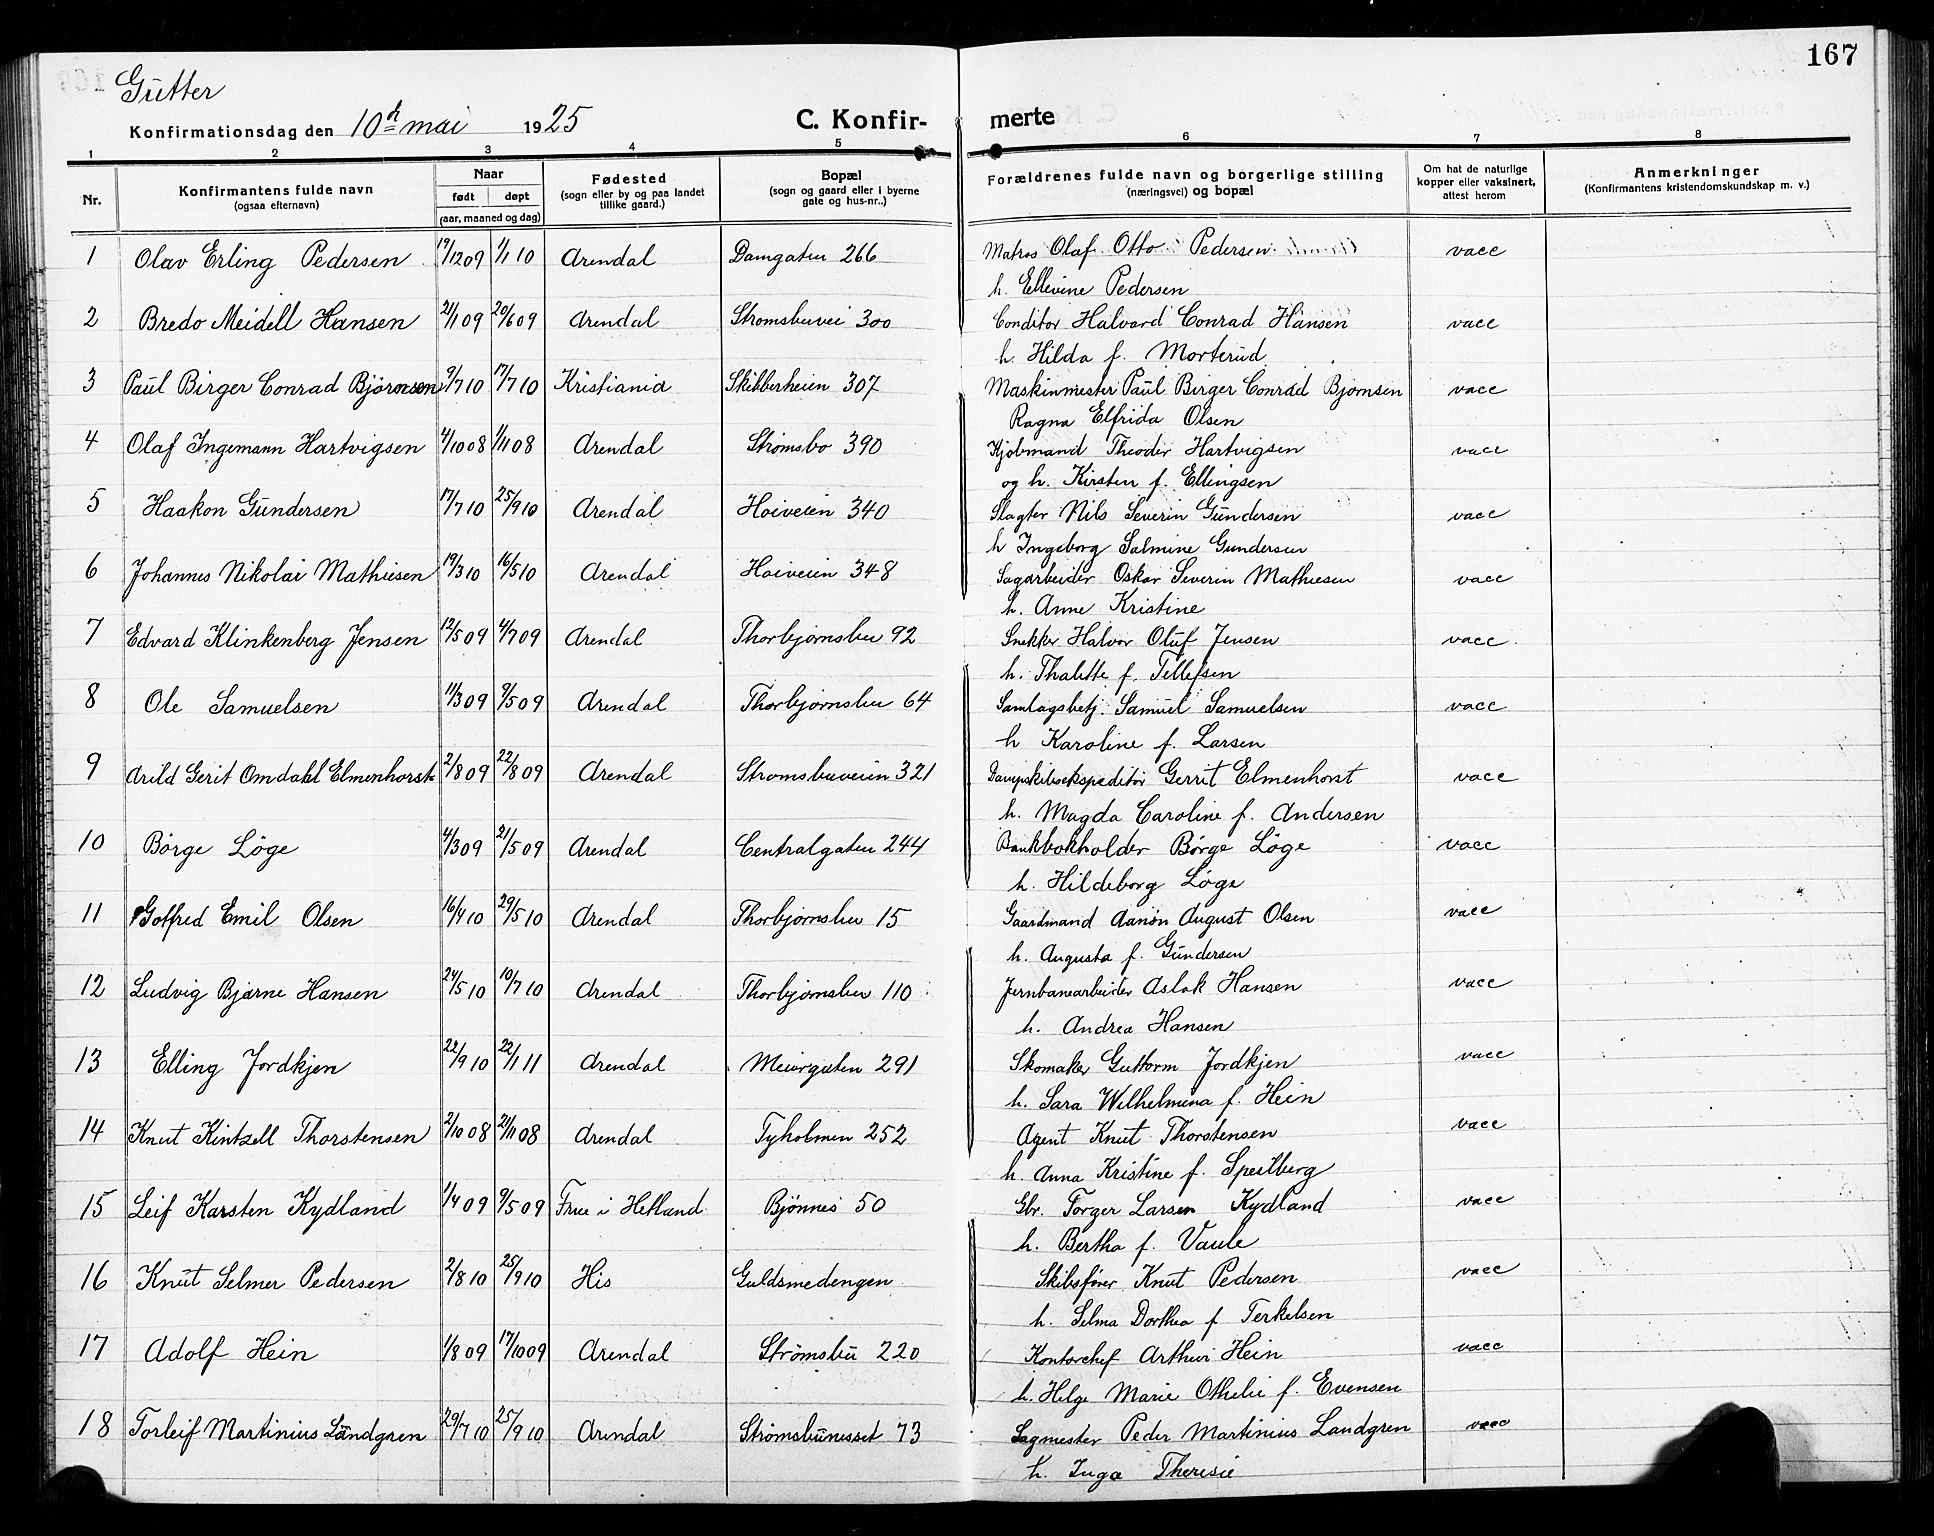 167
Gutter
Konfirmationsdag den 10de mai 1925 C. Konfir- merte
1 2 3 4 5 6 7 8
Nr. Konfirmantens fulde navn (ogsaa efternavn) Naar født døpt (aar, maaned og dag) Fødested (sogn eller by og paa landet tillike gaard.) Bopæl (sogn og gaard eller i byerne gate og hus-nr..) Forældrenes fulde navn og borgerlige stilling (næringsvei) og bopæl Om hat de naturlige kopper eller vaksinert, attest herom Anmerkninger (Konfirmantens kristendomskundskap m. v.)
1 Olav Erling Pedersen 19/12 09 1/1 10 Arendal Damgaten 266 Matros Olaf Otto Pedersen vacc
h. Ellevine Pedersen
2 Bredo Meidell Hansen 21/1 09 20/6 09 Arendal Strømsbuvei 300 Conditor Halvard Conrad Hansen vacc
h. Hilda f. Morterud
3 Paul Birger Conrad Bjørnsen 9/7 10 17/7 10 Kristiania Skibberheien 307 Maskinmester Paul Birger Conrad Bjørnsen vacc
Ragna Elfrida Olsen
4 Olaf Ingemann Hartvigsen 4/10 08 1/11 08 Arendal Strømsbo 390 Kjøbmand Theodor Hartvigsen vacc
og h. Kirsten f. Ellingsen
5 Haakon Gundersen 17/7 10 25/9 10 Arendal Høiveien 340 Slagter Nils Severin Gundersen vacc
h Ingeborg Salmine Gundersen
6 Johannes Nikolai Mathiesen 19/3 10 16/5 10 Arendal Høiveien 348 Sagarbeider Oskar Severin Mathiesen vacc
h. Anne Kristine
7 Edvard Klinkenberg Jensen 12/5 09 4/7 09 Arendal Thorbjørnsbu 92 Snekker Halvor Oluf Jensen vacc.
h. Thalette f. Tellefsen
8 Ole Samuelsen 11/3 09 9/5 09 Arendal Thorbjørnsbu 64 Samlagsbetj. Samuel Samuelsen vacc
h Karoline f. Larsen
9 Arild Gerit Omdahl Elmenhorst 2/8 09 22/8 09 Arendal Strømsbuveien 321 Dampskibsekspeditør Gerrit Elmenhorst vacc
h. Magda Caroline f. Andersen
10 Børge Løge 4/3 09 21/5 09 Arendal Centralgaten 244 Bankbokholder Børge Løge vacc
h. Hildeborg Løge
11 Gotfred Emil Olsen 16/4 10 29/5 10 Arendal Thorbjørnsbu 15 Gaardmand Aanøn August Olsen vacc
h. Augusta f. Gundersen
12 Ludvig Bjarne Hansen 24/5 10 10/7 10 Arendal Thorbjørnsbu 110 Jernbanearbeider Aslak Hansen vacc
h. Andrea Hansen
13 Elling Jordkjen 22/9 10 22/1 11 Arendal Meiergaten 291 Skomaker Guttorm Jordkjen vacc
h. Sara Wilhelmina f. Hein
14 Knut Kintzell Thorstensen 2/10 08 21/11 08 Arendal Tyholmen 252 Agent Knut Thorstensen vacc
h. Anna Kristine f. Speilberg
15 Leif Karsten Kydland 1/4 09 9/5 09 Frue i Hetland Bjønnes 50 Gbr. Torger Larsen Kydland vacc
h. Bertha f. Vaule
16 Knut Selmer Pedersen 2/8 10 25/9 10 His Guldsmedengen Skibsfører Knut Pedersen vacc
h. Selma Dorthea f Terkelsen
17 Adolf Hein 1/8 09 17/10 09 Arendal Strømsbu 220 Kontorchef Arthur Hein vacc
h. Helge Marie Othelie f. Evensen
18 Torleif Martinius Landgren 29/7 10 25/9 10 Arendal Strømsbunesset 73 Sagmester Peder Martinius Landgren vacc
h. Inga Theresie